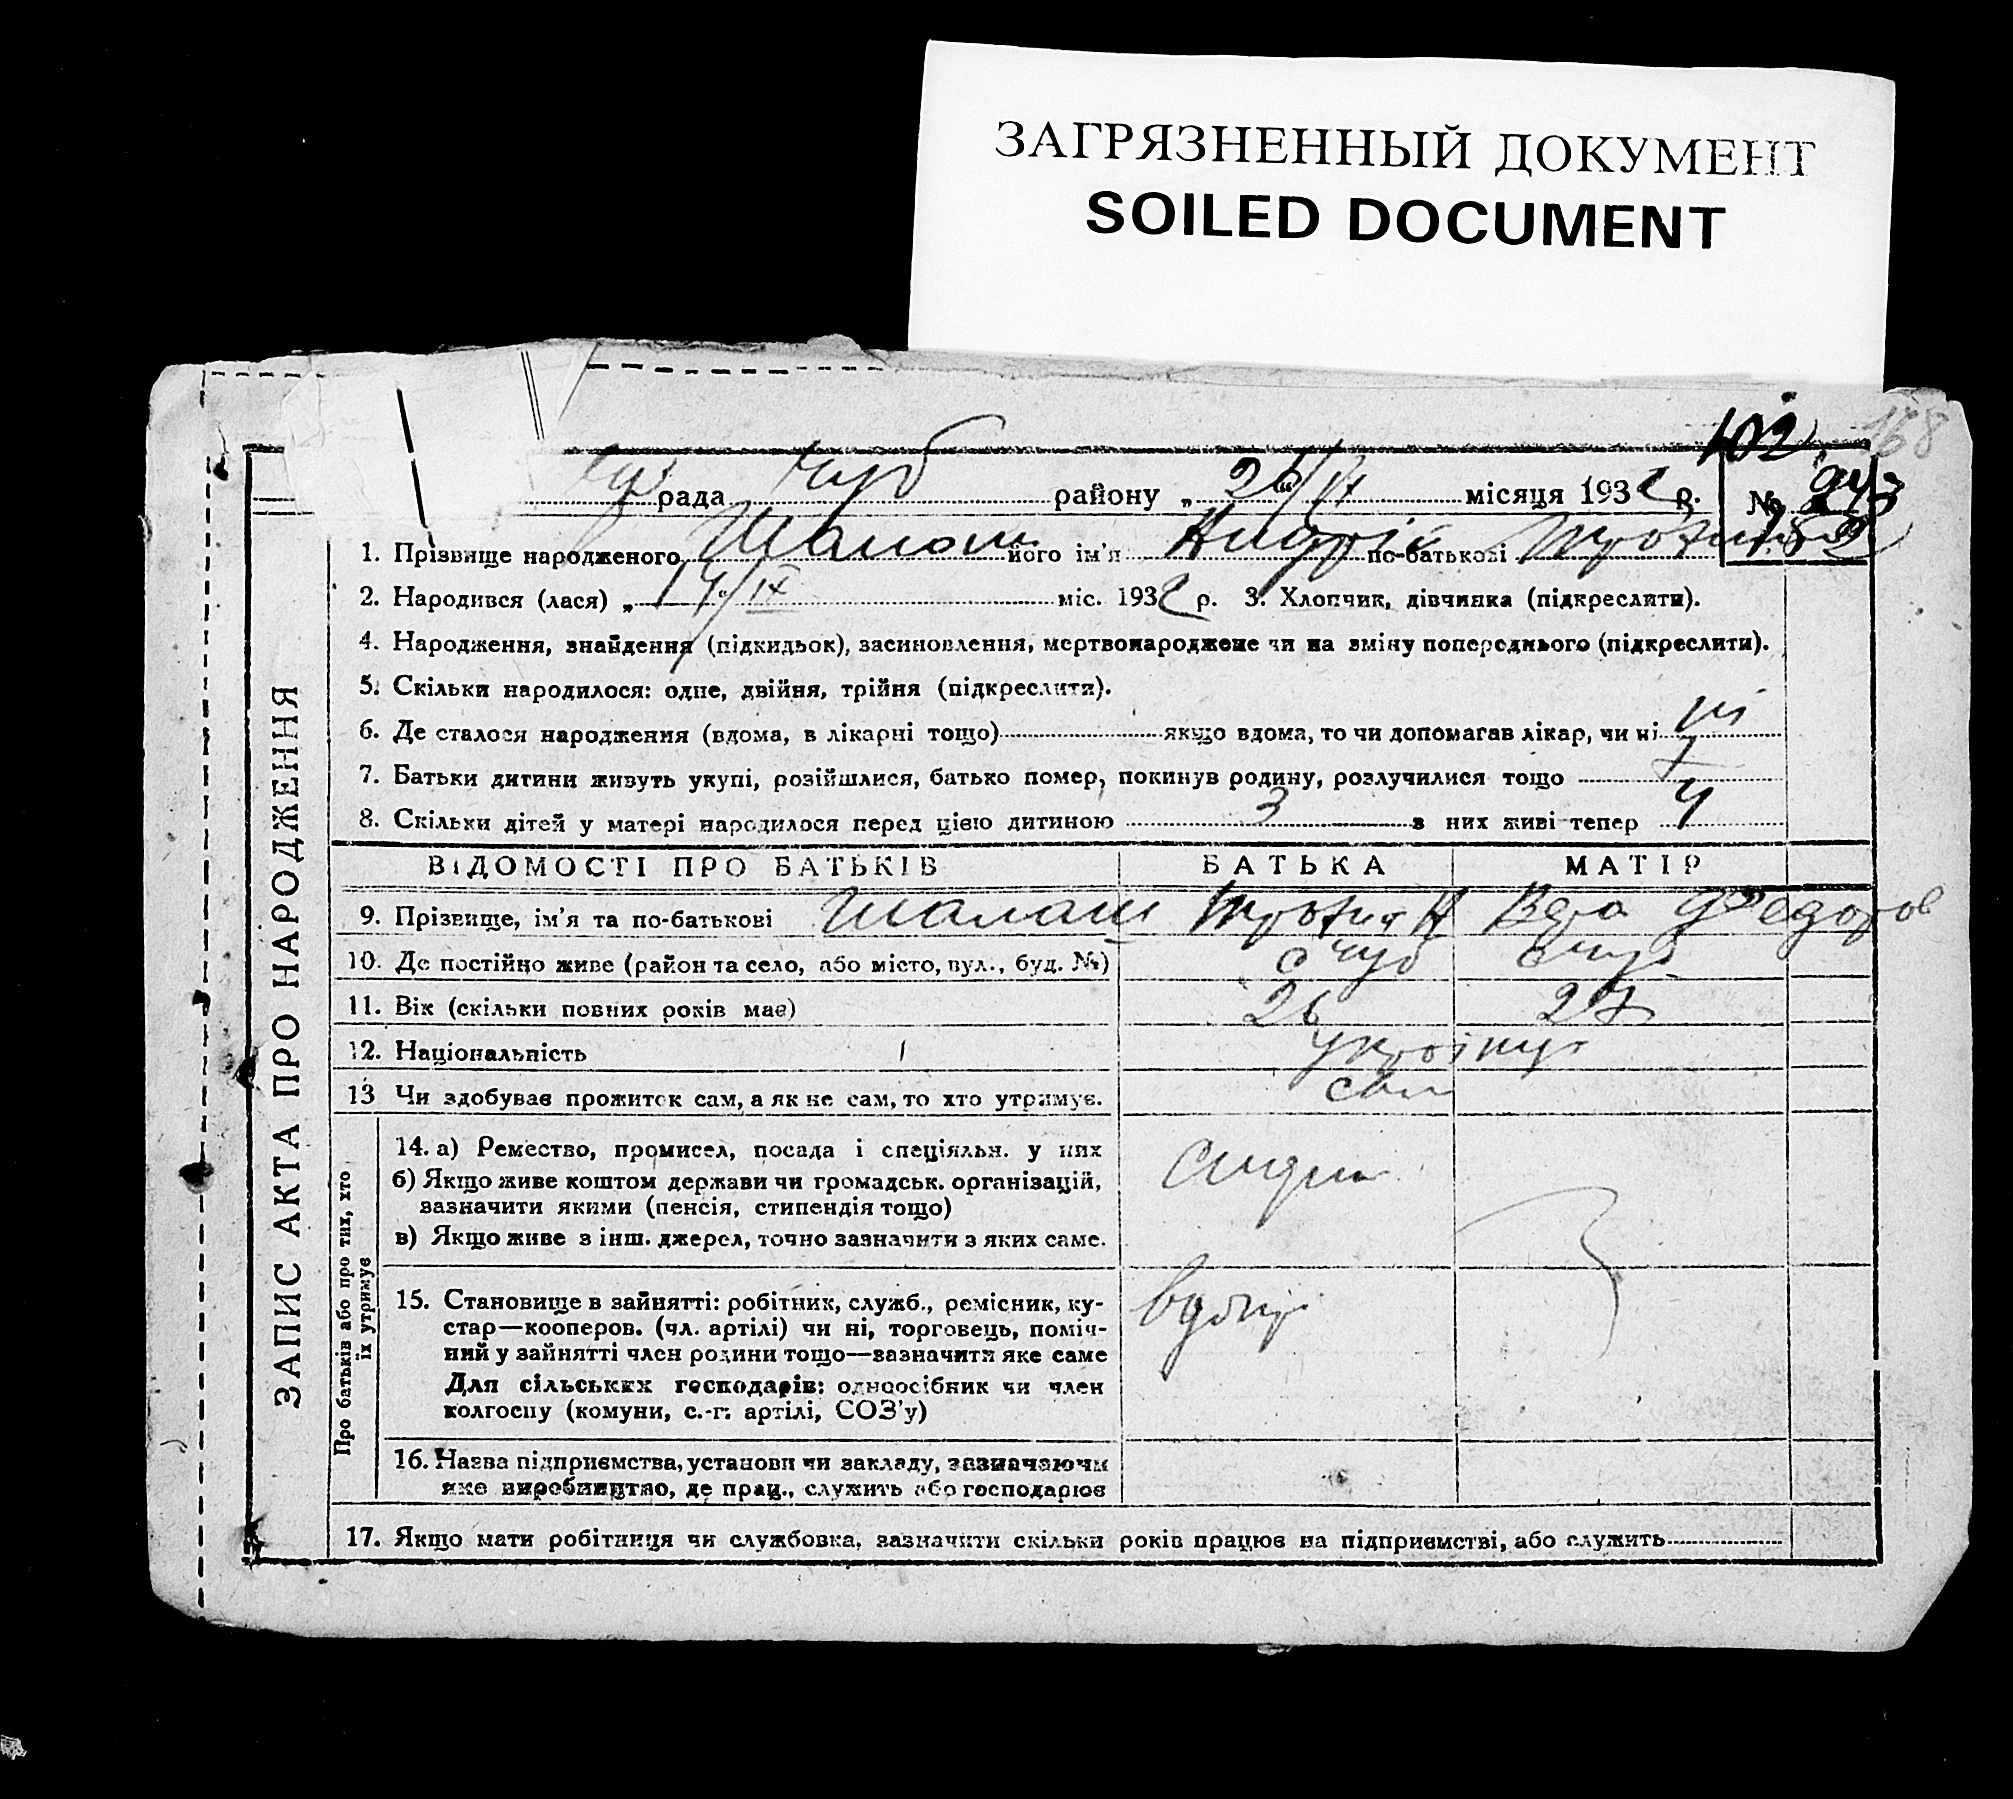 ЗАГРЯЗНЕННЫЙ ДОКУМЕНТ
SOILED DOCUMENT
168
рада Чуб району „ 26/ місяця 1932 р. №
1. Прізвище народженого Шалаш його ім'я Андрій по-батькові
2. Народився (лася) „ 14/IX міс. 1932 р. 3. Хлопчик, дівчинка (підкреслити).
4. Народження, знайдення (підкидьок), засиновлення, мертвонароджене чи на зміну попереднього (підкреслити).
5. Скільки народилося: одне, двійня, трійня (підкреслити).
6. Де сталося народження (вдома, в лікарні тощо) якщо вдома, то чи допомагав лікар, чи ні ні
7. Батьки дитини живуть укупі, розійшлися, батько помер, покинув родину, розлучилися тощо
8. Скільки дітей у матері народилося перед цією дитиною 3 з них живі тепер
ВІДОМОСТІ ПРО БАТЬКІВ БАТЬКА МАТІР
9. Прізвище, ім'я та по-батькові Шалаш Вера Федоров
10. Де постійно живе (район та село, або місто, вул., буд. №) с Чуб
11. Вік (скільки повних років має) 26 27
12. Національність
13 Чи здобував прожиток сам, а як не сам, то хто утримує. сам
14. а) Ремество, промисел, посада і спеціяльн. у них
б) Якщо живе коштом держави чи громадськ. організацій,
зазначити якими (пенсія, стипендія тощо)
в) Якщо живе з інш. джерел, точно зазначити з яких саме.
15. Становище в зайнятті: робітник, служб., ремісник, ку-
стар—кооперов. (чл. артілі) чи ні, торговець, поміч-
ний у зайнятті член родини тощо—зазначити яке саме
Для сільських господарів: одноосібник чи член
колгоспу (комуни, с.-г. артілі, СОЗ'у)
16. Назва підприємства, установи чи закладу, зазначаючи
яке виробництво, де прац., служить або господарює
17. Якщо мати робітниця чи службовка, зазначити скільки років працює на підприємстві, або служить
ЗАПИС АКТА ПРО НАРОДЖЕННЯ
Про батьків або про тих, хто
їх утримує